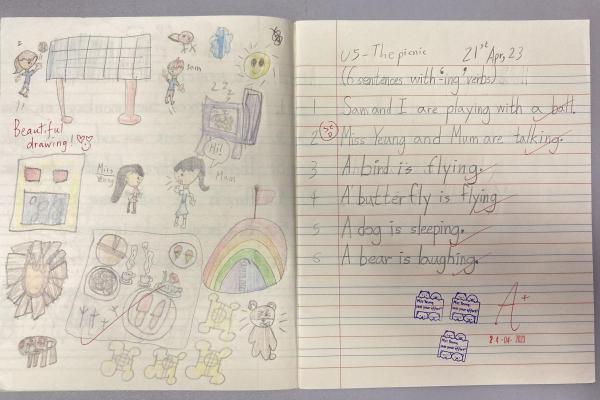 I
Sam
!!
Beautiful
drawing!
zzz
Hi!
Miss
Yeung
Mum
A+
U5 - The picnic 21st Apr, 23
(6 sentences with '-ing' verbs)
1 Sam and I are playing with a ball.
2 Miss Yeung and Mum are talking.
3 A bird is flying.
4 A butterfly is flying.
5 A dog is sleeping.
6 A bear is laughing.
A+
24-04-2023